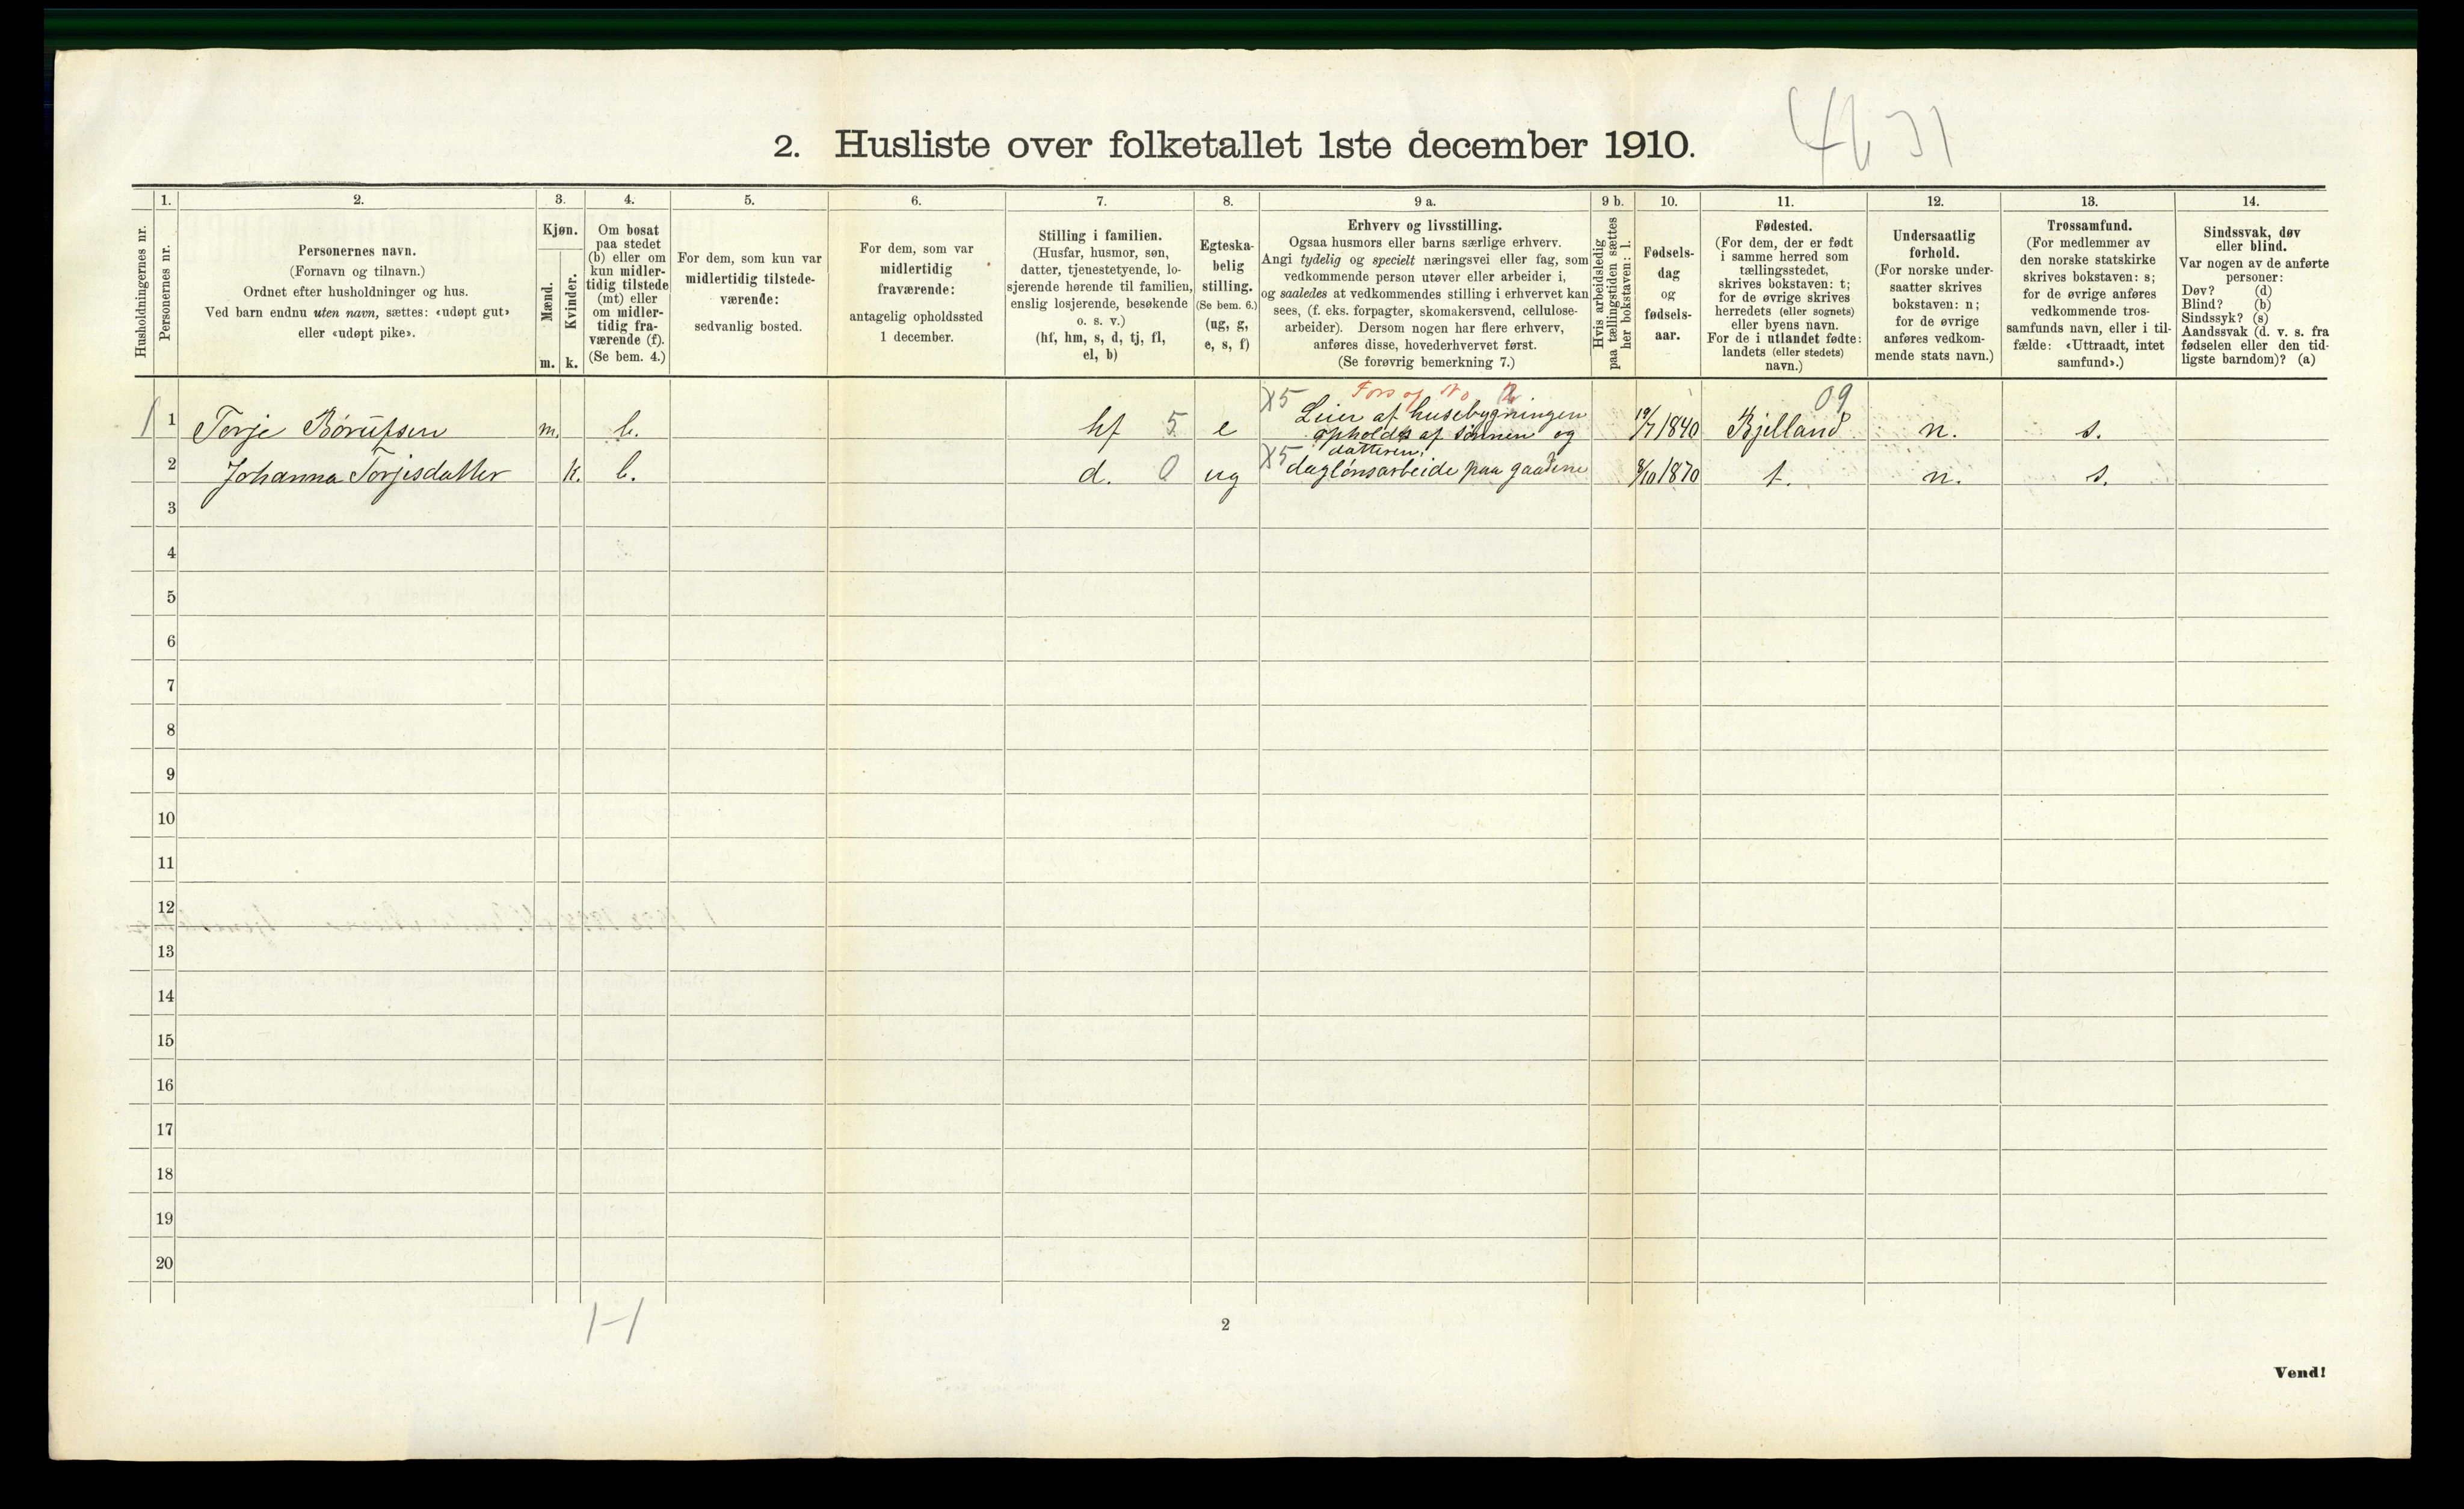 2. Husliste over folketallet 1ste december 1910.
Husholdningernes nr.
1.
Personernes nr.
2.
Personernes navn.
(Fornavn og tilnavn.)
Ordnet efter husholdninger og hus.
Ved barn endnu uten navn, sættes: «udøpt gut»
eller «udøpt pike».
3.
Kjøn.
Mænd.
Kvinder.
m. k.
4.
Om bosat
paa stedet
(b) eller om
kun midler-
tidig tilstede
(mt) eller
om midler-
tidig fra-
værende (f).
(Se bem. 4.)
5.
For dem, som kun var
midlertidig tilstede-
værende:
sedvanlig bosted.
6.
For dem, som var
midlertidig
fraværende:
antagelig opholdssted
1 december.
7.
Stilling i familien.
(Husfar, husmor, søn,
datter, tjenestetyende, lo-
sjerende hørende til familien,
enslig losjerende, besøkende
o. s. v.)
(hf, hm, s, d, tj, fl,
el, b)
8.
Egteska-
belig
stilling.
(Se bem. 6.)
(ug, g,
e, s, f)
9 a.
Erhverv og livsstilling.
Ogsaa husmors eller barns særlige erhverv.
Angi tydelig og specielt næringsvei eller fag, som
vedkommende person utøver eller arbeider i,
og saaledes at vedkommendes stilling i erhvervet kan
sees, (f. eks. forpagter, skomakersvend, cellulose-
arbeider). Dersom nogen har flere erhverv,
anføres disse, hovederhvervet først.
(Se forøvrig bemerkning 7.)
9 b.
Hvis arbeidsledig
paa tællingstiden sættes
her bokstaven: l.
10.
Fødsels-
dag
og
fødsels-
aar.
11.
Fødested.
(For dem, der er født
i samme herred som
tællingsstedet,
skrives bokstaven: t;
for de øvrige skrives
herredets (eller sognets)
eller byens navn.
For de i utlandet fødte:
landets (eller stedets)
navn.)
12.
Undersaatlig
forhold.
(For norske under-
saatter skrives
bokstaven: n;
for de øvrige
anføres vedkom-
mende stats navn.)
13.
Trossamfund.
(For medlemmer av
den norske statskirke
skrives bokstaven: s;
for de øvrige anføres
vedkommende tros-
samfunds navn, eller i til-
fælde: «Uttraadt, intet
samfund».)
14.
Sindssvak, døv
eller blind.
Var nogen av de anførte
personer:
Døv? (d)
Blind? (b)
Sindssyk? (s)
Aandssvak (d. v. s. fra
fødselen eller den tid-
ligste barndom)? (a)
X5 09
1 1 Torje Børufsen m. b. hf 5 e Leier af husebygningen 19/7 1840 Bjelland n. s.
opholdes af sønnen og
datteren.
2 Johanna Torjesdatter k. b. d. 0 ug X5 daglønsarbeide paa gaardene 8/10 1870 t. n. s.
3
4
5
6
7
8
9
10
11
12
13
14
15
16
17
18
19
20
1-1
2
Vend!